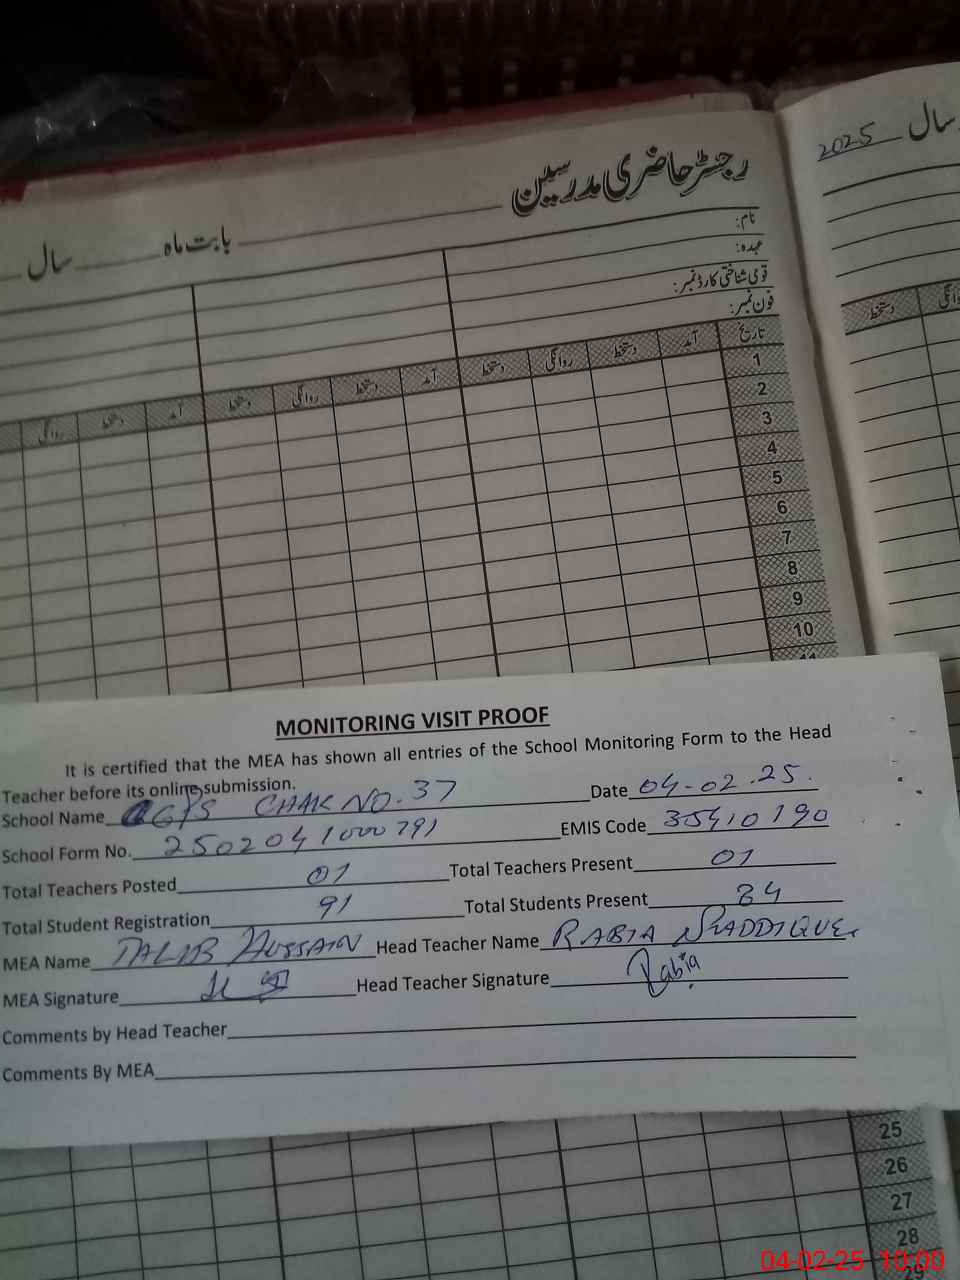 سال 2025
رجسٹر حاضری مدرسین
بابت ماہ سال
نام:
عہدہ:
قومی شناختی کارڈ نمبر:
فون نمبر:
تاریخ آمد دستخط روانگی دستخط آمد دستخط روانگی دستخط آمد دستخط روانگی
روانگی دستخط
1
2
3
4
5
6
7
8
9
10
11
MONITORING VISIT PROOF
It is certified that the MEA has shown all entries of the School Monitoring Form to the Head
Teacher before its online submission.
School Name GPS CHAK NO. 37 Date 04-02-25.
School Form No. 2502041000791 EMIS Code 35410190
Total Teachers Posted 01 Total Teachers Present 01
Total Student Registration 91 Total Students Present 84
MEA Name TALIB HUSSAIN Head Teacher Name RABIA
MEA Signature Head Teacher Signature Rabia
Comments by Head Teacher
Comments By MEA
25
26
27
28
29
04-02-25 10:00